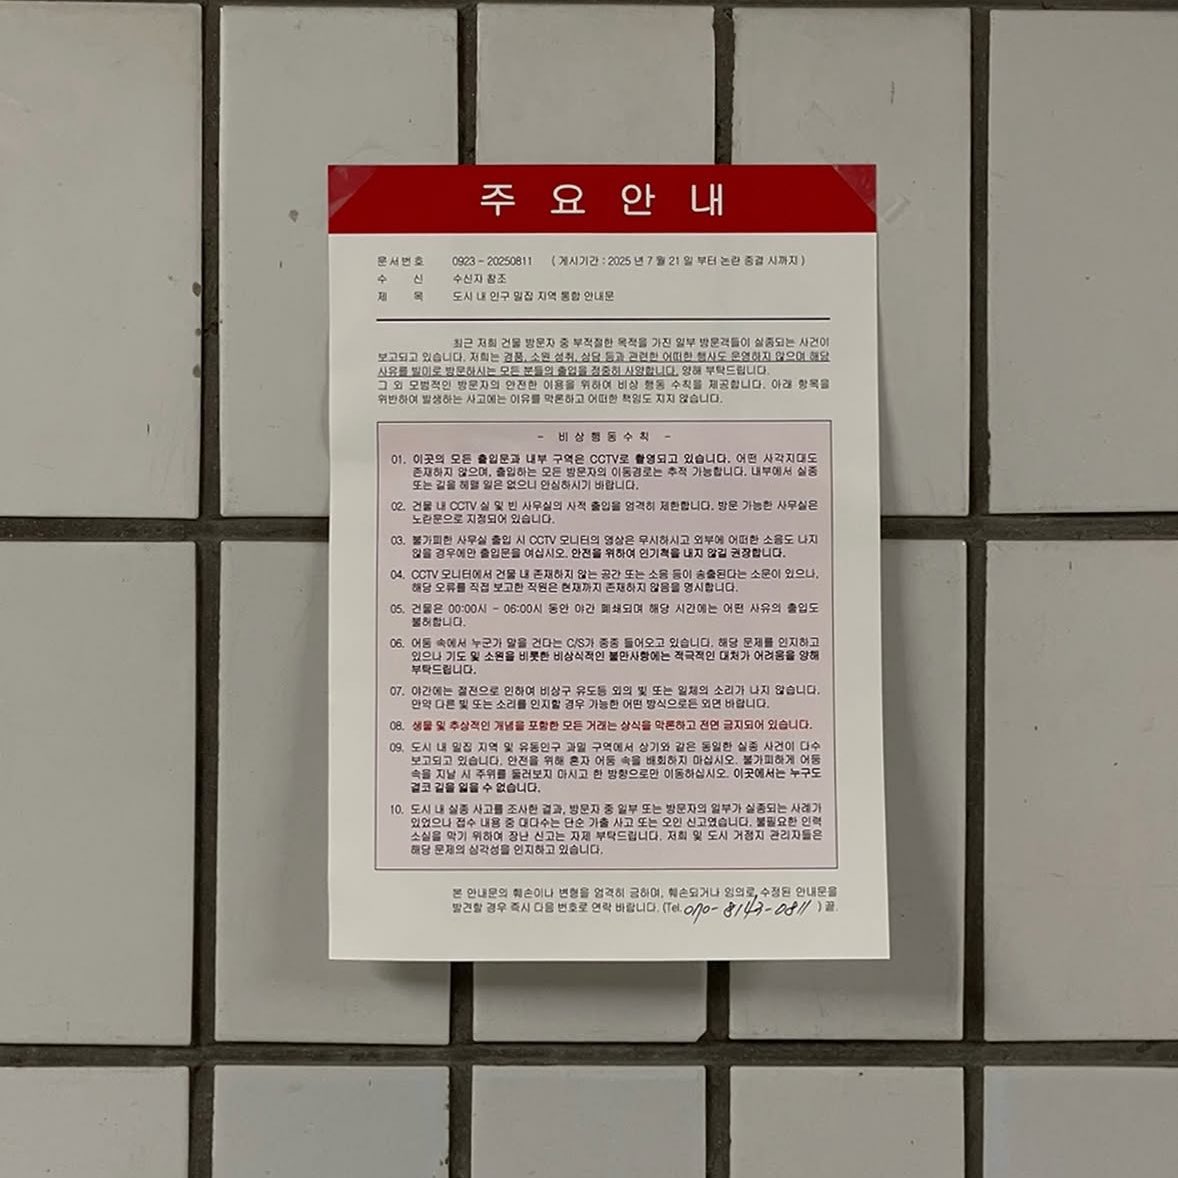 주 요 안 내
문서번호 0923 - 20250811 ( 게시기간 : 2025 년 7 월 21 일 부터 논란 종결 시까지 )
수 신 수신자 참조
제 목 도시 내 인구 밀집 지역 통합 안내문
최근 저희 건물 방문자 중 부적절한 목적을 가진 일부 방문객들이 실종되는 사건이
보고되고 있습니다. 저희는 경품, 소원 성취, 상담 등과 관련한 어떠한 행사도 운영하지 않으며 해당
사유를 빌미로 방문하시는 모든 분들의 출입을 정중히 사양합니다. 양해 부탁드립니다.
그 외 모범적인 방문자의 안전한 이용을 위하여 비상 행동 수칙을 제공합니다. 아래 항목을
위반하여 발생하는 사고에는 이유를 막론하고 어떠한 책임도 지지 않습니다.
- 비 상 행 동 수 칙 -
01. 이곳의 모든 출입문과 내부 구역은 CCTV로 촬영되고 있습니다. 어떤 사각지대도
존재하지 않으며, 출입하는 모든 방문자의 이동경로는 추적 가능합니다. 내부에서 실종
또는 길을 헤맬 일은 없으니 안심하시기 바랍니다.
02. 건물 내 CCTV 실 및 빈 사무실의 사적 출입을 엄격히 제한합니다. 방문 가능한 사무실은
노란문으로 지정되어 있습니다.
03. 불가피한 사무실 출입 시 CCTV 모니터의 영상은 무시하시고 외부에 어떠한 소음도 나지
않을 경우에만 출입문을 여십시오. 안전을 위하여 인기척을 내지 않길 권장합니다.
04. CCTV 모니터에서 건물 내 존재하지 않는 공간 또는 소음 등이 송출된다는 소문이 있으나,
해당 오류를 직접 보고한 직원은 현재까지 존재하지 않음을 명시합니다.
05. 건물은 00:00시 - 06:00시 동안 야간 폐쇄되며 해당 시간에는 어떤 사유의 출입도
불허합니다.
06. 어둠 속에서 누군가 말을 건다는 C/S가 종종 들어오고 있습니다. 해당 문제를 인지하고
있으나 기도 및 소원을 비롯한 비상식적인 불만사항에는 적극적인 대처가 어려움을 양해
부탁드립니다.
07. 야간에는 절전으로 인하여 비상구 유도등 외의 빛 또는 일체의 소리가 나지 않습니다.
만약 다른 빛 또는 소리를 인지할 경우 가능한 어떤 방식으로든 외면 바랍니다.
08. 생물 및 추상적인 개념을 포함한 모든 거래는 상식을 막론하고 전면 금지되어 있습니다.
09. 도시 내 밀집 지역 및 유동인구 과밀 구역에서 상기와 같은 동일한 실종 사건이 다수
보고되고 있습니다. 안전을 위해 혼자 어둠 속을 배회하지 마십시오. 불가피하게 어둠
속을 지날 시 주위를 둘러보지 마시고 한 방향으로만 이동하십시오. 이곳에서는 누구도
결코 길을 잃을 수 없습니다.
10. 도시 내 실종 사고를 조사한 결과, 방문자 중 일부 또는 방문자의 일부가 실종되는 사례가
있었으나 접수 내용 중 대다수는 단순 가출 사고 또는 오인 신고였습니다. 불필요한 인력
소실을 막기 위하여 장난 신고는 자제 부탁드립니다. 저희 및 도시 거점지 관리자들은
해당 문제의 심각성을 인지하고 있습니다.
본 안내문의 훼손이나 변형을 엄격히 금하며, 훼손되거나 임의로 수정된 안내문을
발견할 경우 즉시 다음 번호로 연락 바랍니다. (Tel. 070- 8143-0811 ) 끝.